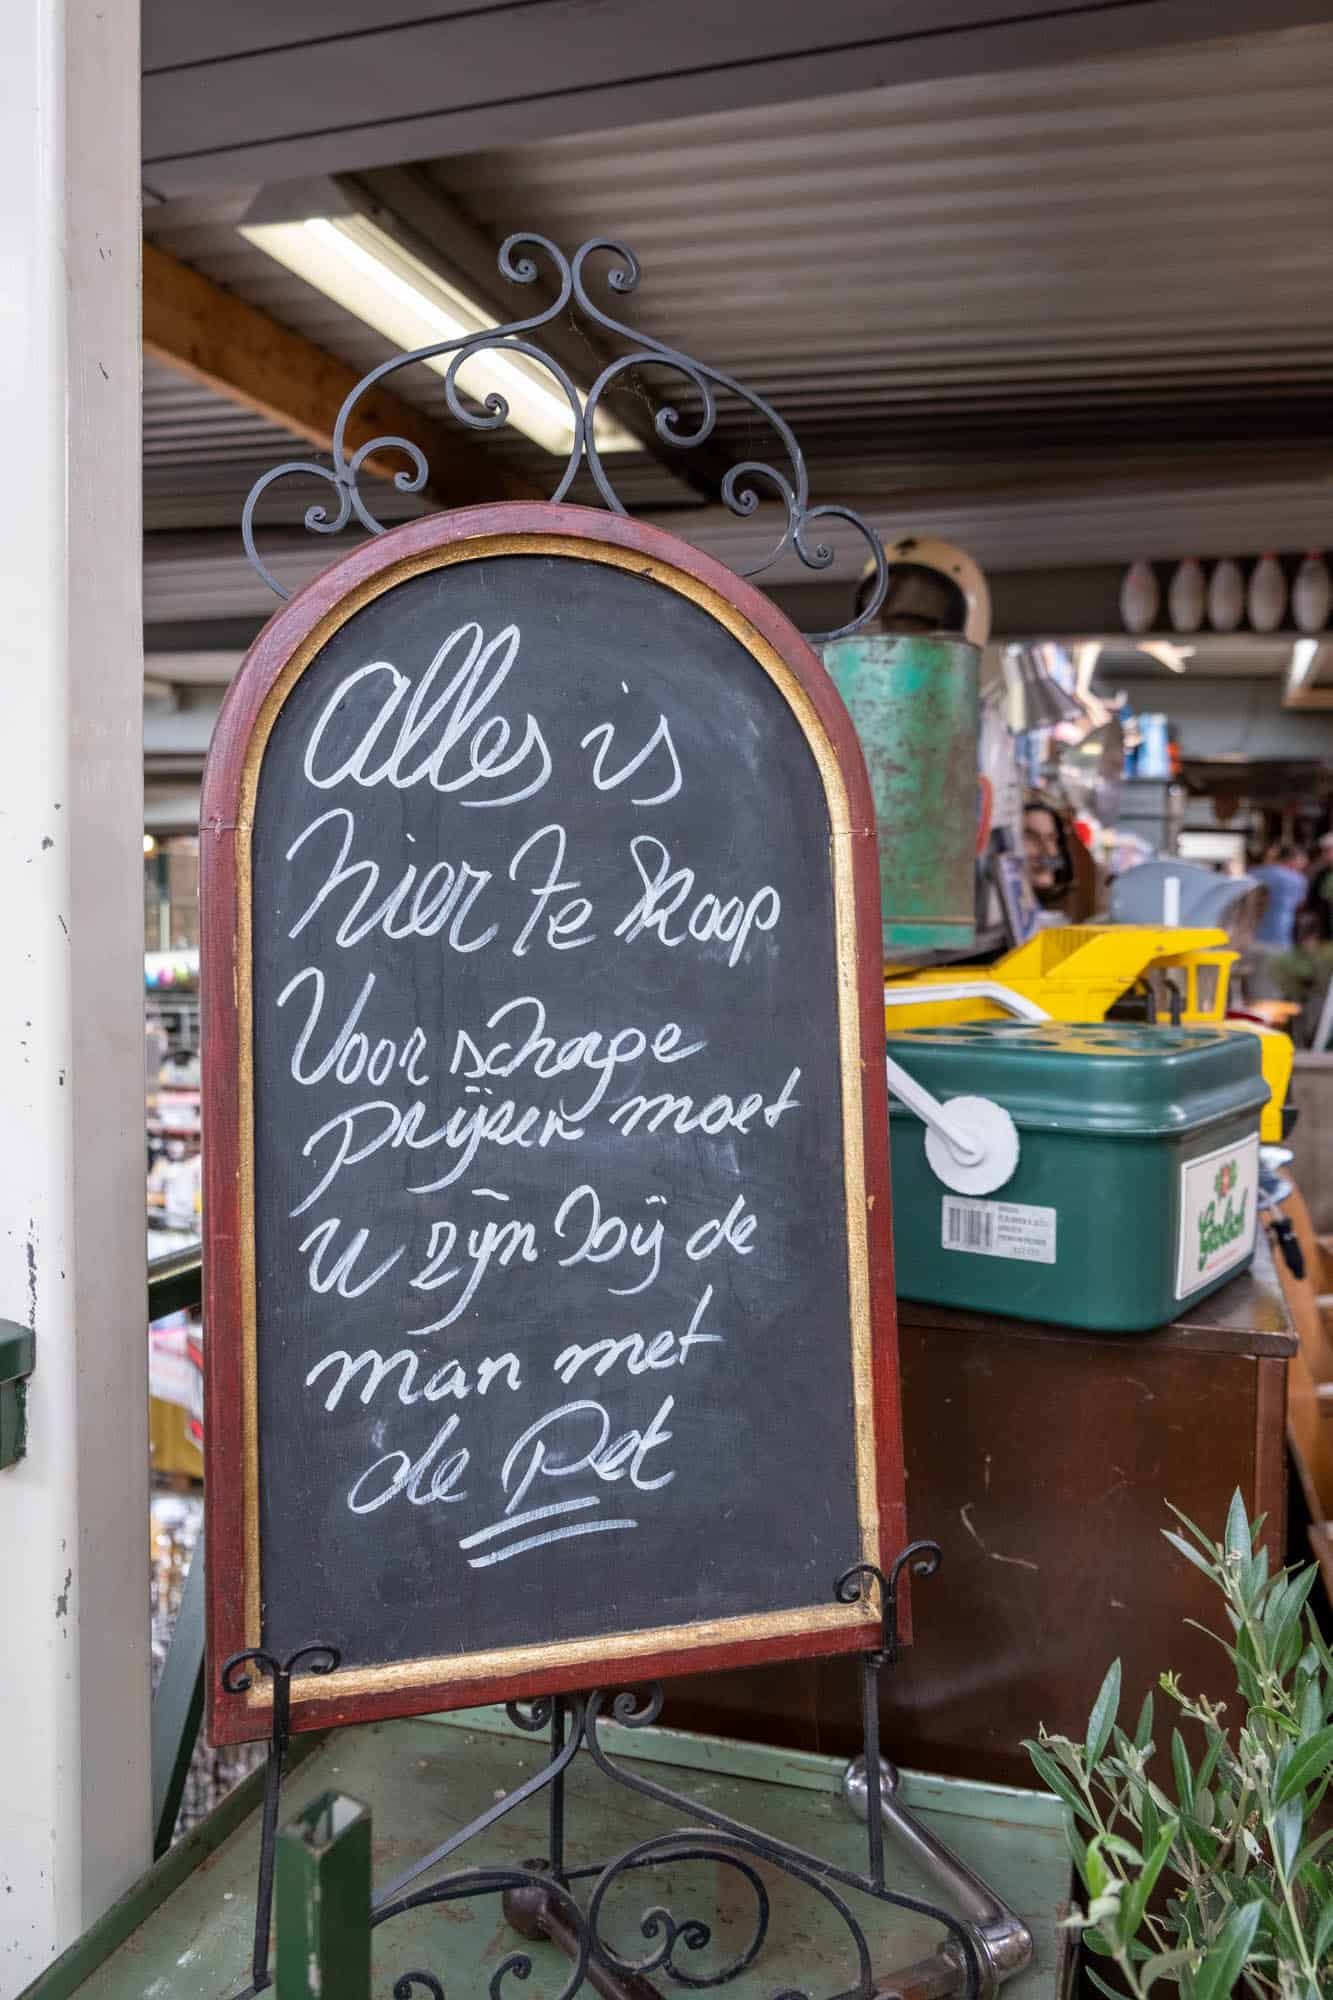 alles is
hier te koop
Voor scherpe
prijzen moet
u zijn bij de
man met
de Pet
Grolsch